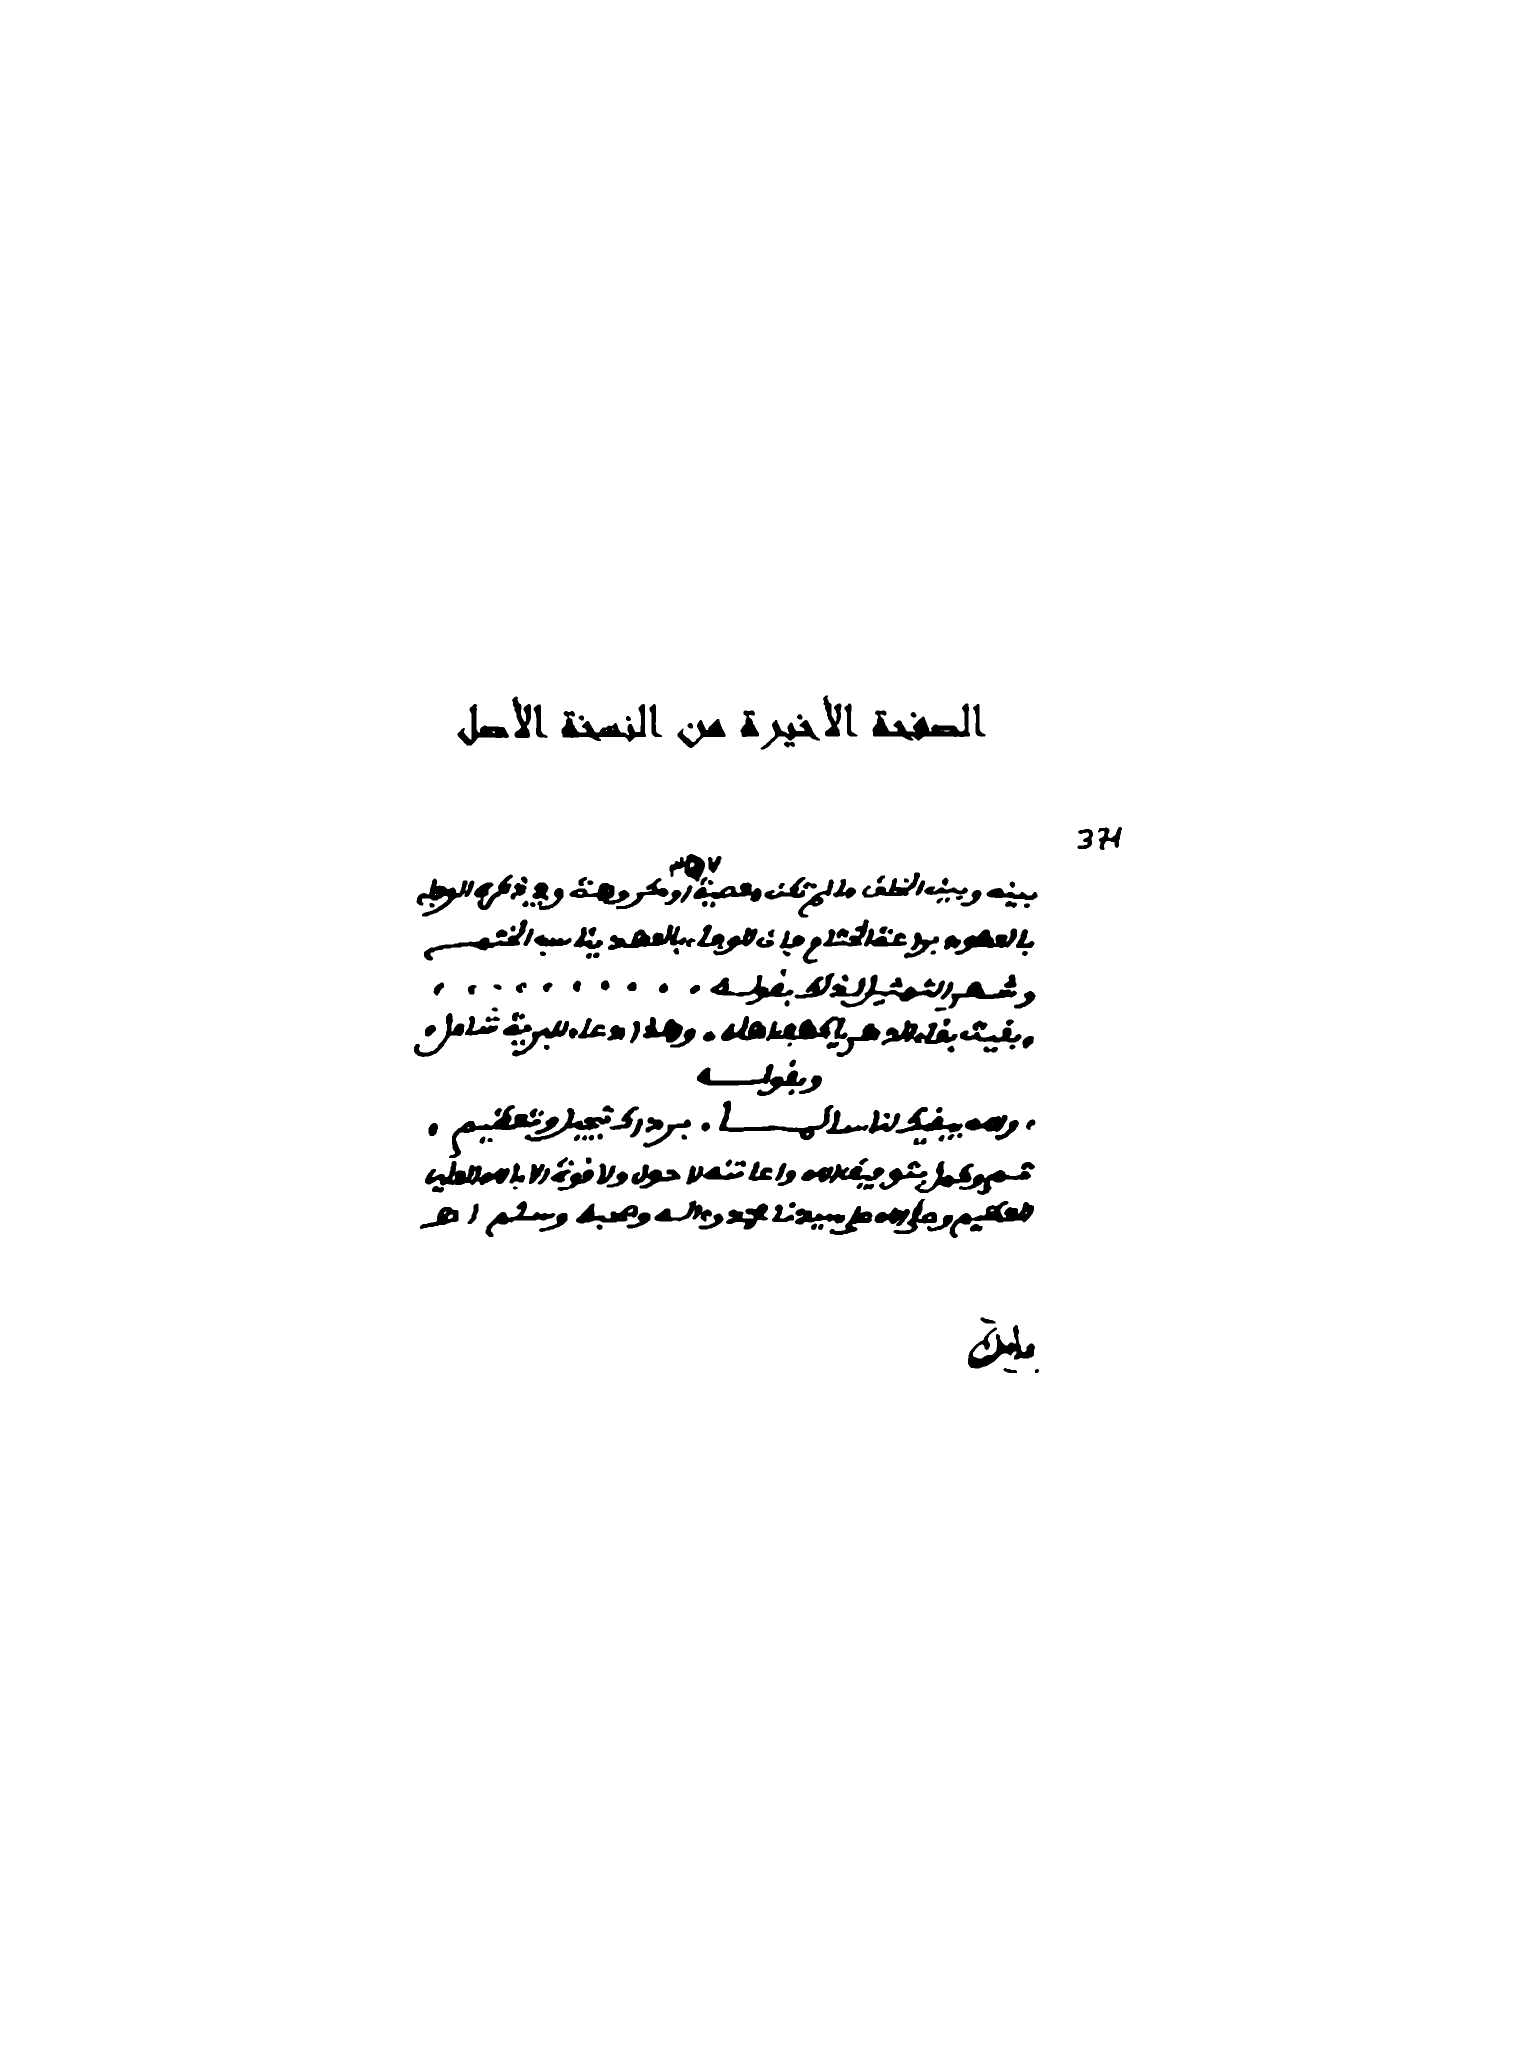 الصفحة الأخيرة من النسخة الأصل
371
بينه وبين الخلق ما لم تكن معصية او مكروهة وفي ذكره الوفاء
بالعهود براعة الختام فإن الوفاء بالعهد يناسبه الختم
وشهر التمثيل لذلك بقوله . . . . . . . . . .
وبقيت بقاء الدهر يا كهف اهله . وهذا دعاء للبرية شامل .
وبقوله
. والله يبقيك لنا سالما . برداك تبجيل وتعظيم .
تم وكمل بتوفيق الله واعانته لا حول ولا قوة الا بالله العلي
العظيم وصلى الله على سيدنا محمد وءاله وصحبه وسلم اهـ